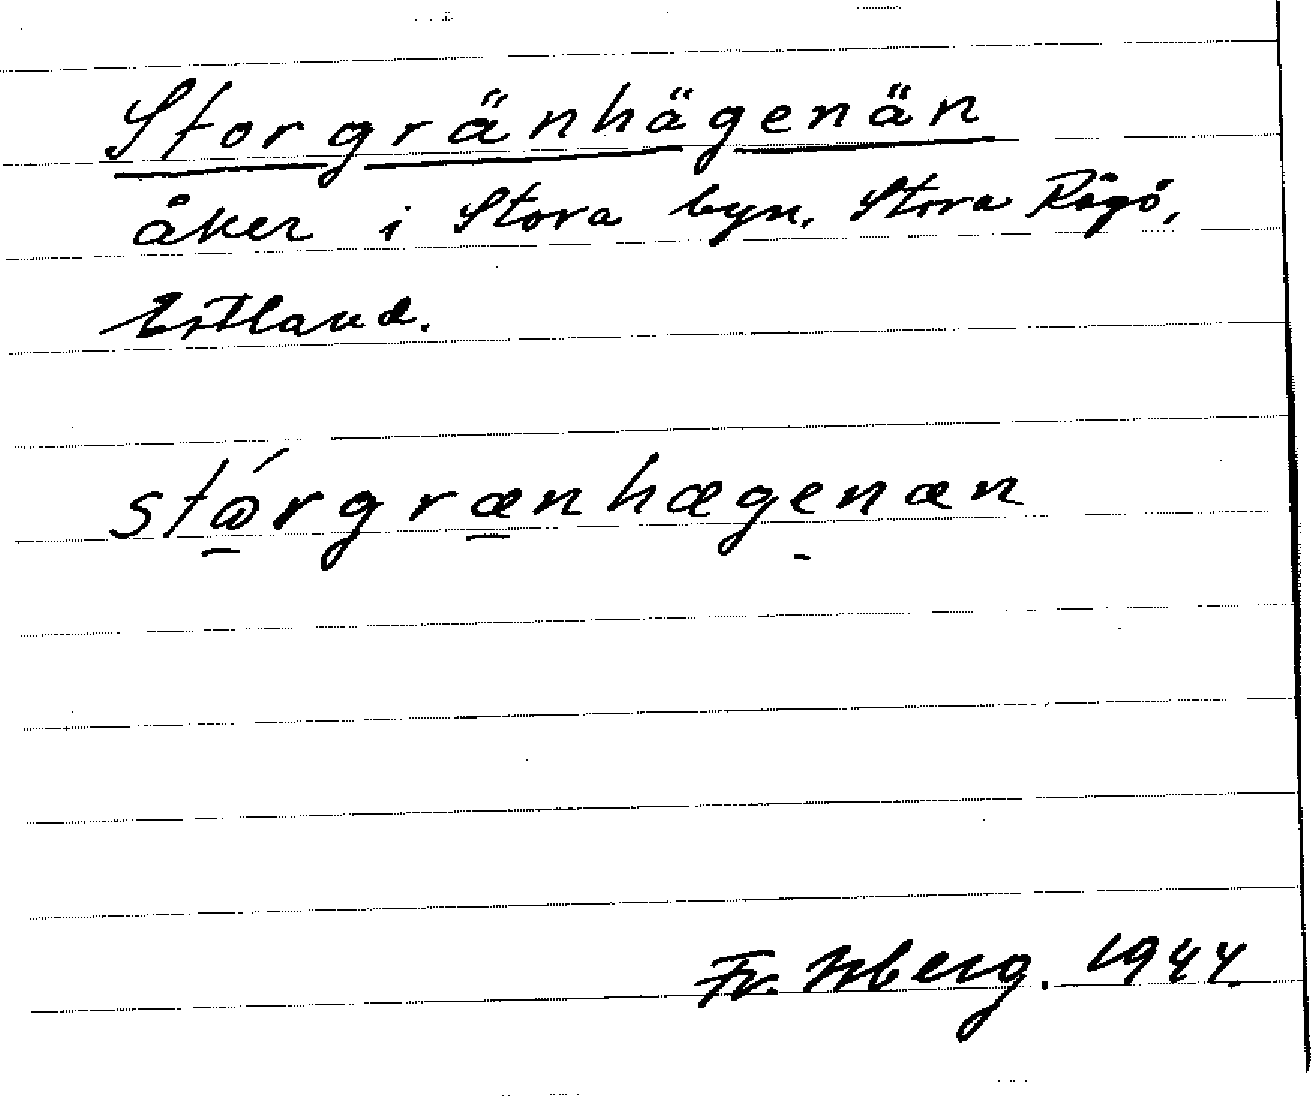 Storgränhägenän
åker i Stora byn, Stora Rågö,
Estland.
stǻrgrænhægenæn
Fr. Isberg. 1944.